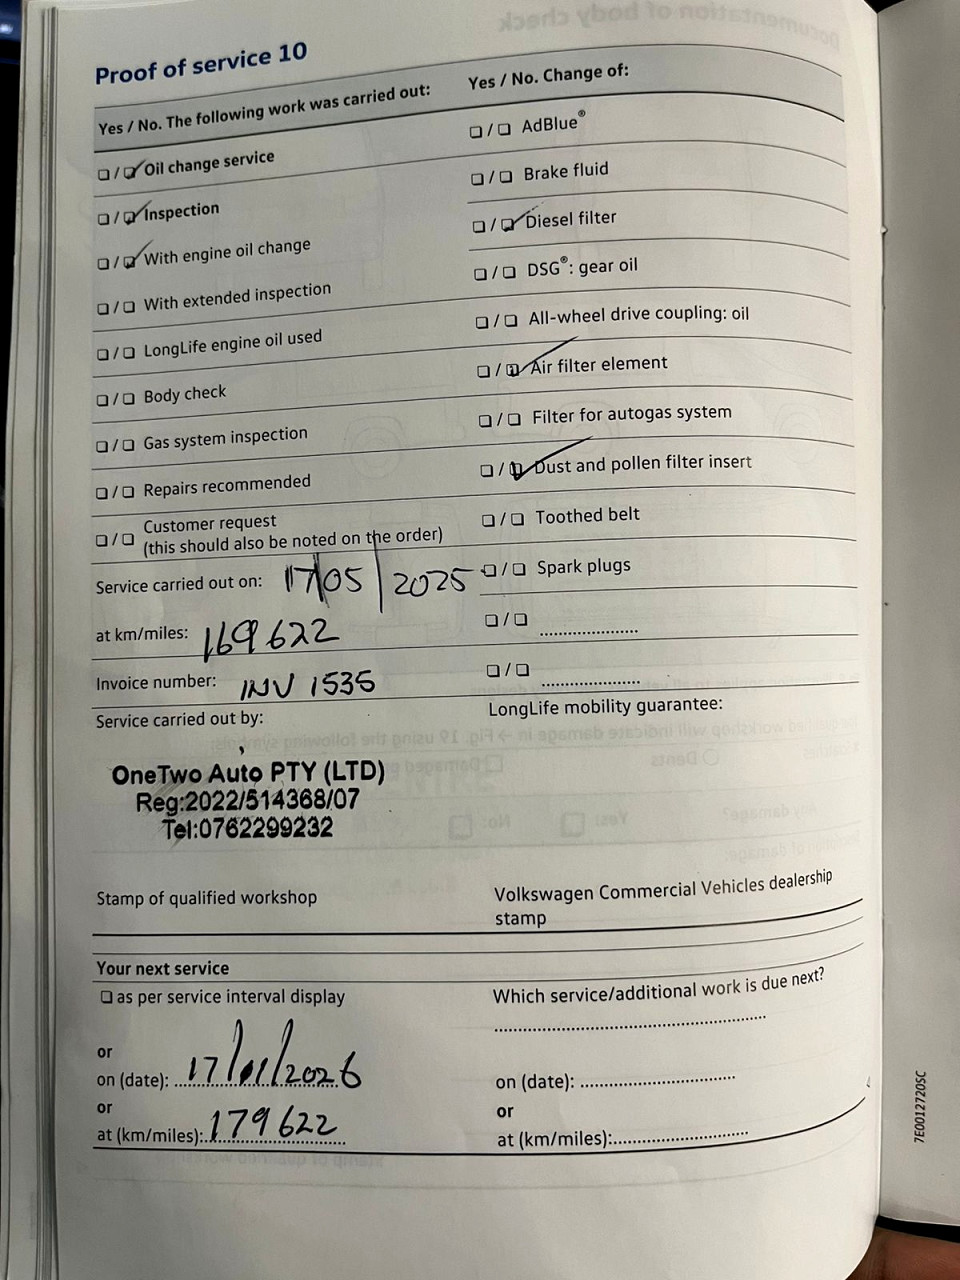 Proof of service 10
Yes / No. The following work was carried out:
☐ / ☑ Oil change service
☐ / ☑ Inspection
☐ / ☑ With engine oil change
☐ / ☐ With extended inspection
☐ / ☐ LongLife engine oil used
☐ / ☐ Body check
☐ / ☐ Gas system inspection
☐ / ☐ Repairs recommended
☐ / ☐ Customer request
(this should also be noted on the order)
Service carried out on: 17/05/2025
at km/miles: 169 622
Invoice number: INV 1535
Service carried out by:
OneTwo Auto PTY (LTD)
Reg:2022/514368/07
Tel:0762299232
Stamp of qualified workshop
Yes / No. Change of:
☐ / ☐ AdBlue®
☐ / ☐ Brake fluid
☐ / ☑ Diesel filter
☐ / ☐ DSG®: gear oil
☐ / ☐ All-wheel drive coupling: oil
☐ / ☑ Air filter element
☐ / ☐ Filter for autogas system
☐ / ☑ Dust and pollen filter insert
☐ / ☐ Toothed belt
☐ / ☐ Spark plugs
☐ / ☐ ....................
☐ / ☐ ....................
LongLife mobility guarantee:
Volkswagen Commercial Vehicles dealership
stamp
Your next service
☐ as per service interval display
or
on (date): 17/01/2026
or
at (km/miles): 179 622
Which service/additional work is due next?
........................................
on (date): ................................
or
at (km/miles):............................
7E0012720SC